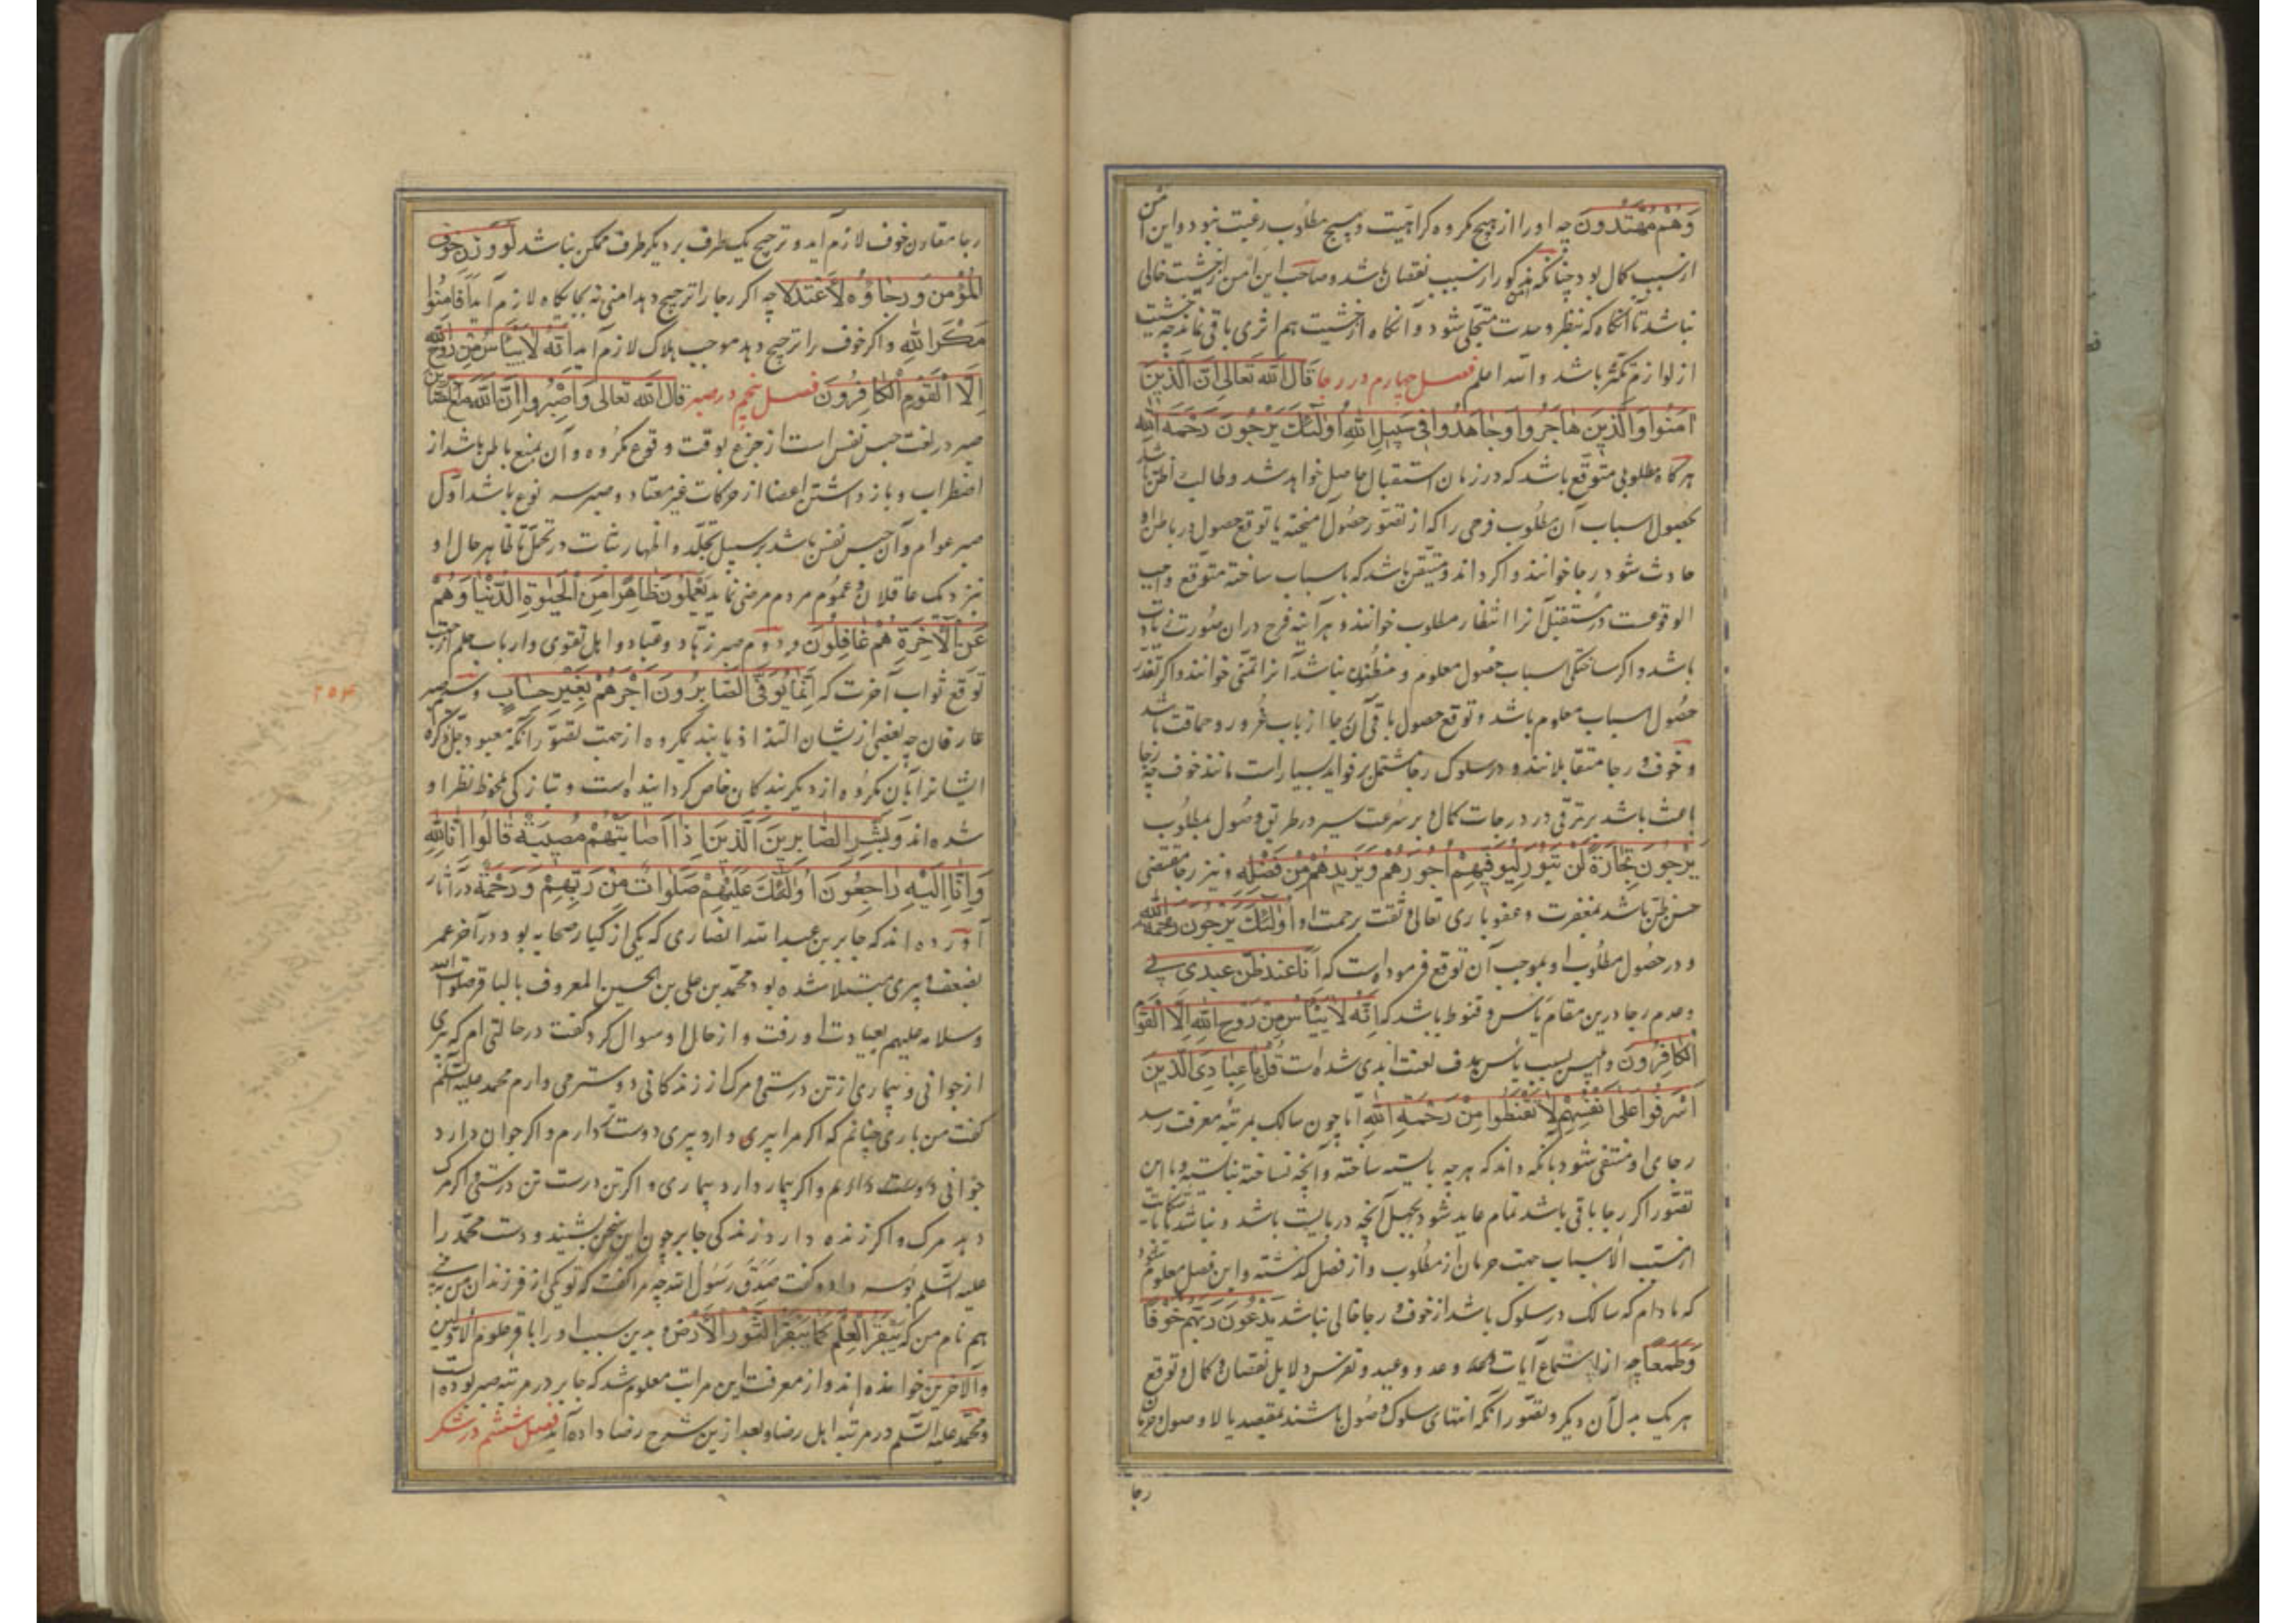 وَهُمْ مُهْتَدُونَ چه او را از هیچ مکروه کراهیت و بهیچ مطلوب رغبت نبود و این امن
از سبب کمال بود چنانکه مذکور از سبب نقصان باشد و صاحب این امن از خشیت خالی
نباشد تا آنکاه که بنظر وحدت متجلی شود و آنکاه از خشیت هم اثری باقی نماند چه خشیت
از لوازم تکثر باشد والله اعلم فصل چهارم در رجا قال الله تعالی اِنَّ الَّذینَ
اٰمَنُوا وَالَّذینَ هٰاجَرُوا وَجٰاهَدُوا فی سَبیلِ اللّٰهِ اُولٰئِکَ یَرْجُونَ رَحْمَةَ اللّٰه
هرکاه مطلوبی متوقع باشد که در زمان استقبال حاصل خواهد شد و طالب را ظن باشد
بحصول اسباب آن مطلوب فرحی را که از تصور حصول آمیخته با توقع حصول در باطن او
حادث شود رجا خوانند و اکر داند و متیقن باشد که باسباب ساخته متوقع واجب
الوقوعست در مستقبل آنرا انتظار مطلوب خوانند و هرآینه فرح در ان صورت زیادت
باشد و اکر ساختکی اسباب حصول معلوم و مظنون نباشد آنرا تمنی خوانند و اکر تعذر
حصول اسباب معلوم باشد و توقع حصول باقی آن رجا از باب غرور و حماقت باشد
و خوف و رجا متقابلانند و در سلوک رجا مشتمل بر فواید بسیار است مانند خوف چه رجا
باعث باشد بر ترقی در درجات کمال و بر سرعت سیر در طریق وصول بمطلوب
یَرْجُونَ تِجٰارَةً لَنْ تَبُورَ لِیُوَفِّیَهُمْ اُجُورَهُمْ وَیَزیدَهُمْ مِنْ فَضْلِهِ و نیز رجا مقتضی
حسن ظن باشد بمغفرت و عفو باری تعالی و ثقت برحمت او اُولٰئِکَ یَرْجُونَ رَحْمَةَ اللّٰه
و در حصول مطلوب او بموجب آن توقع فرموده است که اَنَا عِنْدَ ظَنِّ عَبْدی بی
و عدم رجا درین مقام یأس و قنوط باشد که اِنَّهُ لٰا یَیْأَسُ مِنْ رَوْحِ اللّٰهِ اِلَّا الْقَوْمُ
الْکٰافِرُونَ و ابلیس بسبب یأس هدف لعنت ابدی شده است قُلْ یٰا عِبٰادِیَ الَّذینَ
اَسْرَفُوا عَلٰی اَنْفُسِهِمْ لٰا تَقْنَطُوا مِنْ رَحْمَةِ اللّٰهِ اما چون سالک بمرتبه معرفت رسد
رجای او منتفی شود بآنکه داند که هرچه بایسته ساخته و آنچه نساخته نبایسته و با این
تصور اکر رجا باقی باشد تمام عاید شود بجهل آنچه دربایست باشد و نباشد
از مسبب الاسباب جهت حرمان از مطلوب و از فصل کذشته و این فصل معلوم شود
که مادام که سالک در سلوک باشد از خوف و رجا خالی نباشد یَدْعُونَ رَبَّهُمْ خَوْفًا
وَطَمَعًا چه از استماع آیات وعد و وعید و تفرس دلایل نقصان و کمال و توقع
هر یک بدل آن دیکر و تصور آنکه انتهای سلوک وصول باشند بمقصد یا لا وصول و حرمان
رجا
رجا مقارن خوف لازم آید و ترجیح یک طرف بر دیکر طرف ممکن نباشد لَوْ وُزِنَ خَوْفُ
الْمُؤْمِنِ وَرَجٰاؤُهُ لَاعْتَدَلٰا چه اکر رجا را ترجیح دهد امنی نه بجایکاه لازم آید اَفَاَمِنُوا
مَکْرَ اللّٰهِ و اکر خوف را ترجیح دهد موجب هلاک لازم آید اِنَّهُ لٰا یَیْأَسُ مِنْ رَوْحِ اللّٰه
اِلَّا الْقَوْمُ الْکٰافِرُونَ فصل پنجم در صبر قال الله تعالی وَاصْبِرُوا اِنَّ اللّٰهَ مَعَ الصّٰابِرین
صبر در لغت حبس نفس است از جزع بوقت وقوع مکروه و آن بمنع باطن باشد از
اضطراب و باز داشتن اعضا از حرکات غیر معتاد و صبر سه نوع باشد اول
صبر عوام و آن حبس نفس باشد بر سبیل تجلد و اظهار ثبات در تحمل تا ظاهر حال او
نزدیک عاقلان و عموم مردم مرضی نماید یَعْلَمُونَ ظٰاهِرًا مِنَ الْحَیٰوةِ الدُّنْیٰا وَهُمْ
عَنِ الْاٰخِرَةِ هُمْ غٰافِلُونَ و دوم صبر زهاد و عباد و اهل تقوی و ارباب علم از جهت
توقع ثواب آخرت که اِنَّمٰا یُوَفَّی الصّٰابِرُونَ اَجْرَهُمْ بِغَیْرِ حِسٰابٍ و سیم صبر
عارفان چه بعضی ازیشان التذاذ یابند بمکروه از جهت تصور آنکه معبود جل ذکره
ایشانرا بآن مکروه از دیکر بندکان خاص کردانیده است و بتازکی ملحوظ نظر او
شده اند وَبَشِّرِ الصّٰابِرینَ الَّذینَ اِذٰا اَصٰابَتْهُمْ مُصیبَةٌ قٰالُوا اِنّٰا لِلّٰهِ
وَاِنّٰا اِلَیْهِ رٰاجِعُونَ اُولٰئِکَ عَلَیْهِمْ صَلَوٰاتٌ مِنْ رَبِّهِمْ وَرَحْمَةٌ در آثار
آورده اند که جابر بن عبدالله انصاری که یکی از کبار صحابه بود در آخر عمر
بضعف پیری مبتلا شده بود محمد بن علی بن الحسین المعروف بالباقر صلوات الله
وسلامه علیهم بعیادت او رفت و از حال او سوال کرد کفت در حالتی ام که پیری
از جوانی و بیماری از تن درستی و مرک از زندکانی دوستر می دارم محمد علیه السلم
کفت من باری چنانم که اکر مرا پیری دارد پیری دوست دارم و اکر جوان دارد
جوانی دوست دارم و اکر بیمار دارد بیماری و اکر تن درست تن درستی و اکر مرک
دهد مرک و اکر زنده دارد زندکی جابر چون این سخن بشنید و دست محمد را
علیه السلم بوسه داد و کفت صَدَقَ رَسُول الله چه مرا کفت که تو یکی از فرزندان من به بینی
هم نام من که یَبْقَرُ الْعِلْمَ کَمٰا یَبْقَرُ الثَّوْرُ الْاَرْضَ و بدین سبب او را باقر علوم الاولین
والآخرین خوانده اند و از معرفت این مراتب معلوم شد که جابر در مرتبه صبر بوده است
و محمد علیه السلم در مرتبه اهل رضا و بعد ازین شرح رضا داده آید فصل ششم در شکر